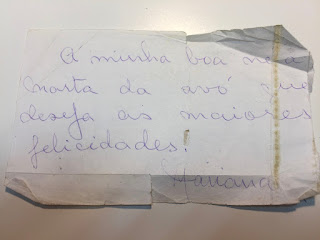 À minha boa neta
Marta da avó que
deseja as maiores
felicidades!
Mariana